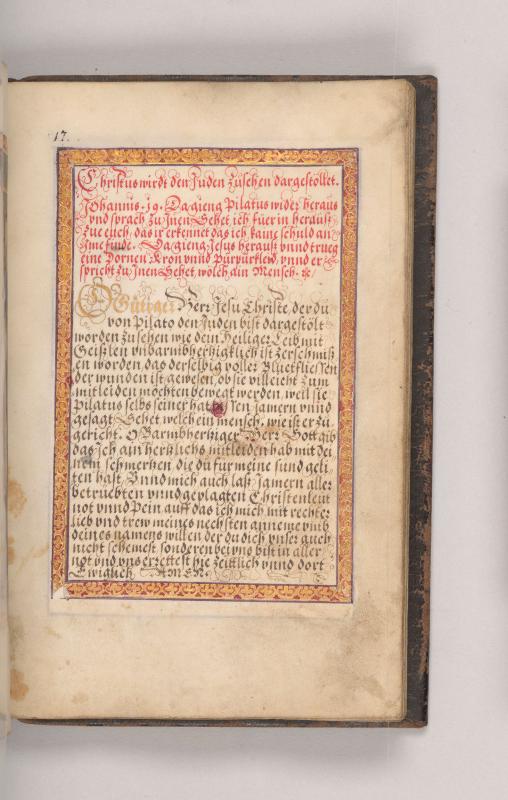 17.
Christus wirdt den Juden zusehen dargestöllet.
Johannis. 19. Da gieng Pilatus wider heraus
vnd sprach zu Inen Sehet ich füer in herauß
zue euch, das ir erkennet das ich kaine schuld an
Ime finde. Da gieng Jesus herauß vnnd trueg
eine Dornen Kron vnnd Purpurkleid, vnnd er
spricht zu Inen Sehet, wölch ain Mensch.
O Gütiger Herr Jesu Christe, der du
von Pilato den Juden bist dargestölt
worden zusehen wie dein Heiliger Leib mit
Geißlen vnbarmhertzigklich ist zerschmiß
en worden, das derselbig voller Bluetfliessen
der wunden ist gewesen, ob sie villeicht zum
mitleiden möchten bewegt werden, weil sie
Pilatus selbs seiner hat jamern vnnd
gesagt Sehet welch ein mensch, wie ist er zu
gericht. O Barmhertziger Herr Gott gib
das Ich ain hertzlichs mitleiden hab mit dei
nem schmertzen die du für meine sünd geli
ten hast, Vnnd mich auch laß Jamern aller
betrüebten vnnd geplagten Christenleut
not vnnd Pein auff das ich mich mit rechter
lieb vnd trew meines nechsten anneme vmb
deines namens willen der du dich vnser auch
nicht schemest sonderen bey vns bist in aller
not vnd vns errettest hie zeitlich vnnd dort
Ewiglich. AMEN.